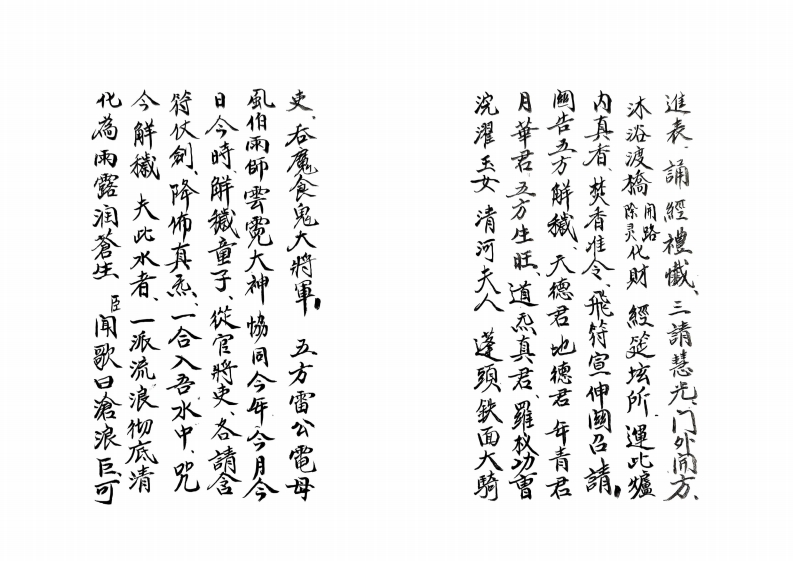 進表、誦經禮懺、三請慧光、門外開方、
沐浴渡橋 開路除灵 化財 經筵坛所 運此爐
内真香、焚香准令、飛符宣伸関召請。
関告五方解穢 天德君 地德君 年青君
月華君 五方生旺、道炁真君、羅杈功曹
浣濯玉女 清河夫人 蓬頭鉄面大騎
吏、吞魔食鬼大將軍。五方雷公電母
風伯雨師雲霓大神 恊同今年今月今
日今時、解穢童子、從官將吏、各請含
符仗劍、降佈真炁、一合入吾水中、咒
今解穢 夫此水者、一派流浪彻底清
化為雨露润蒼生 臣聞歌曰滄浪巨可